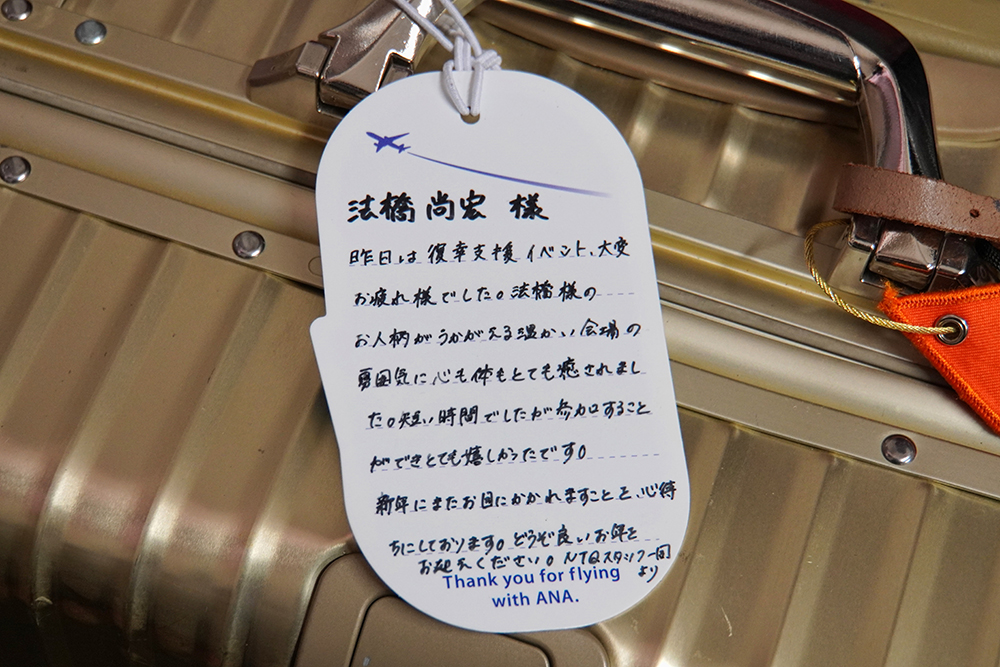 法橋尚宏 様
昨日は復幸支援イベント、大変
お疲れ様でした。法橋様の
お人柄がうかがえる温かい会場の
雰囲気に心も体もとても癒されまし
た。短い時間でしたが参加すること
ができとても嬉しかったです。
新年にまたお目にかかれますことを、心待
ちにしております。どうぞ良いお年を
お迎えください。NTQスタッフ一同
より
Thank you for flying
with ANA.